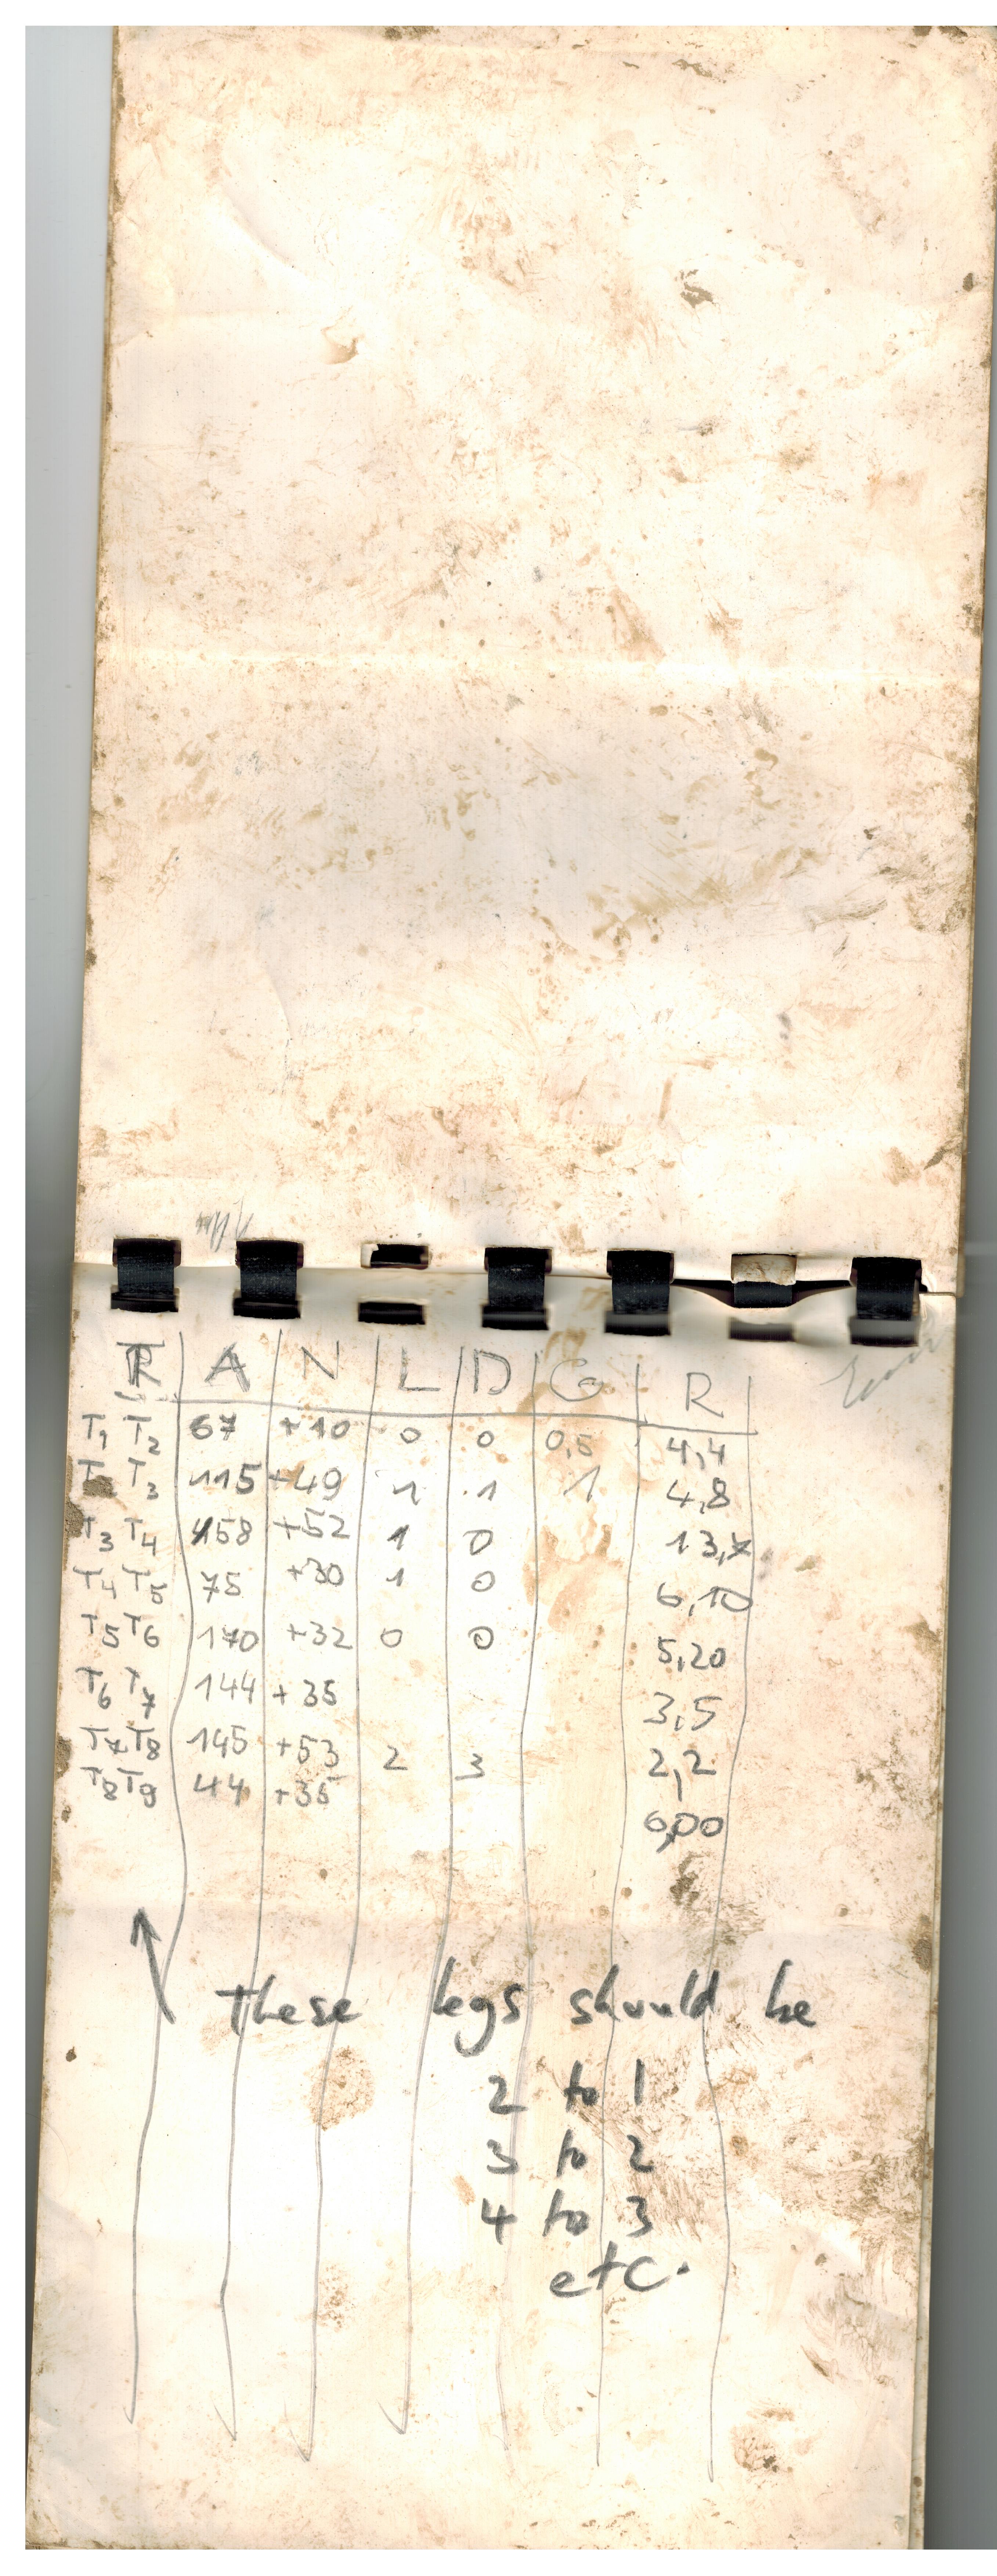 T A N L D G R
T1 T2 67 +10 0 0 0,5 4,4
T3 115 +49 1 1 1 4,8
T3 T4 158 +52 1 0 13,7
T4 T5 75 +30 1 0 6,10
T5 T6 170 +32 0 0 5,20
T6 T7 144 +35 3,5
T7 T8 145 +53 2 3 2,2
T8 T9 44 +35 6,00
These legs should be
2 to 1
3 to 2
4 to 3
etc.